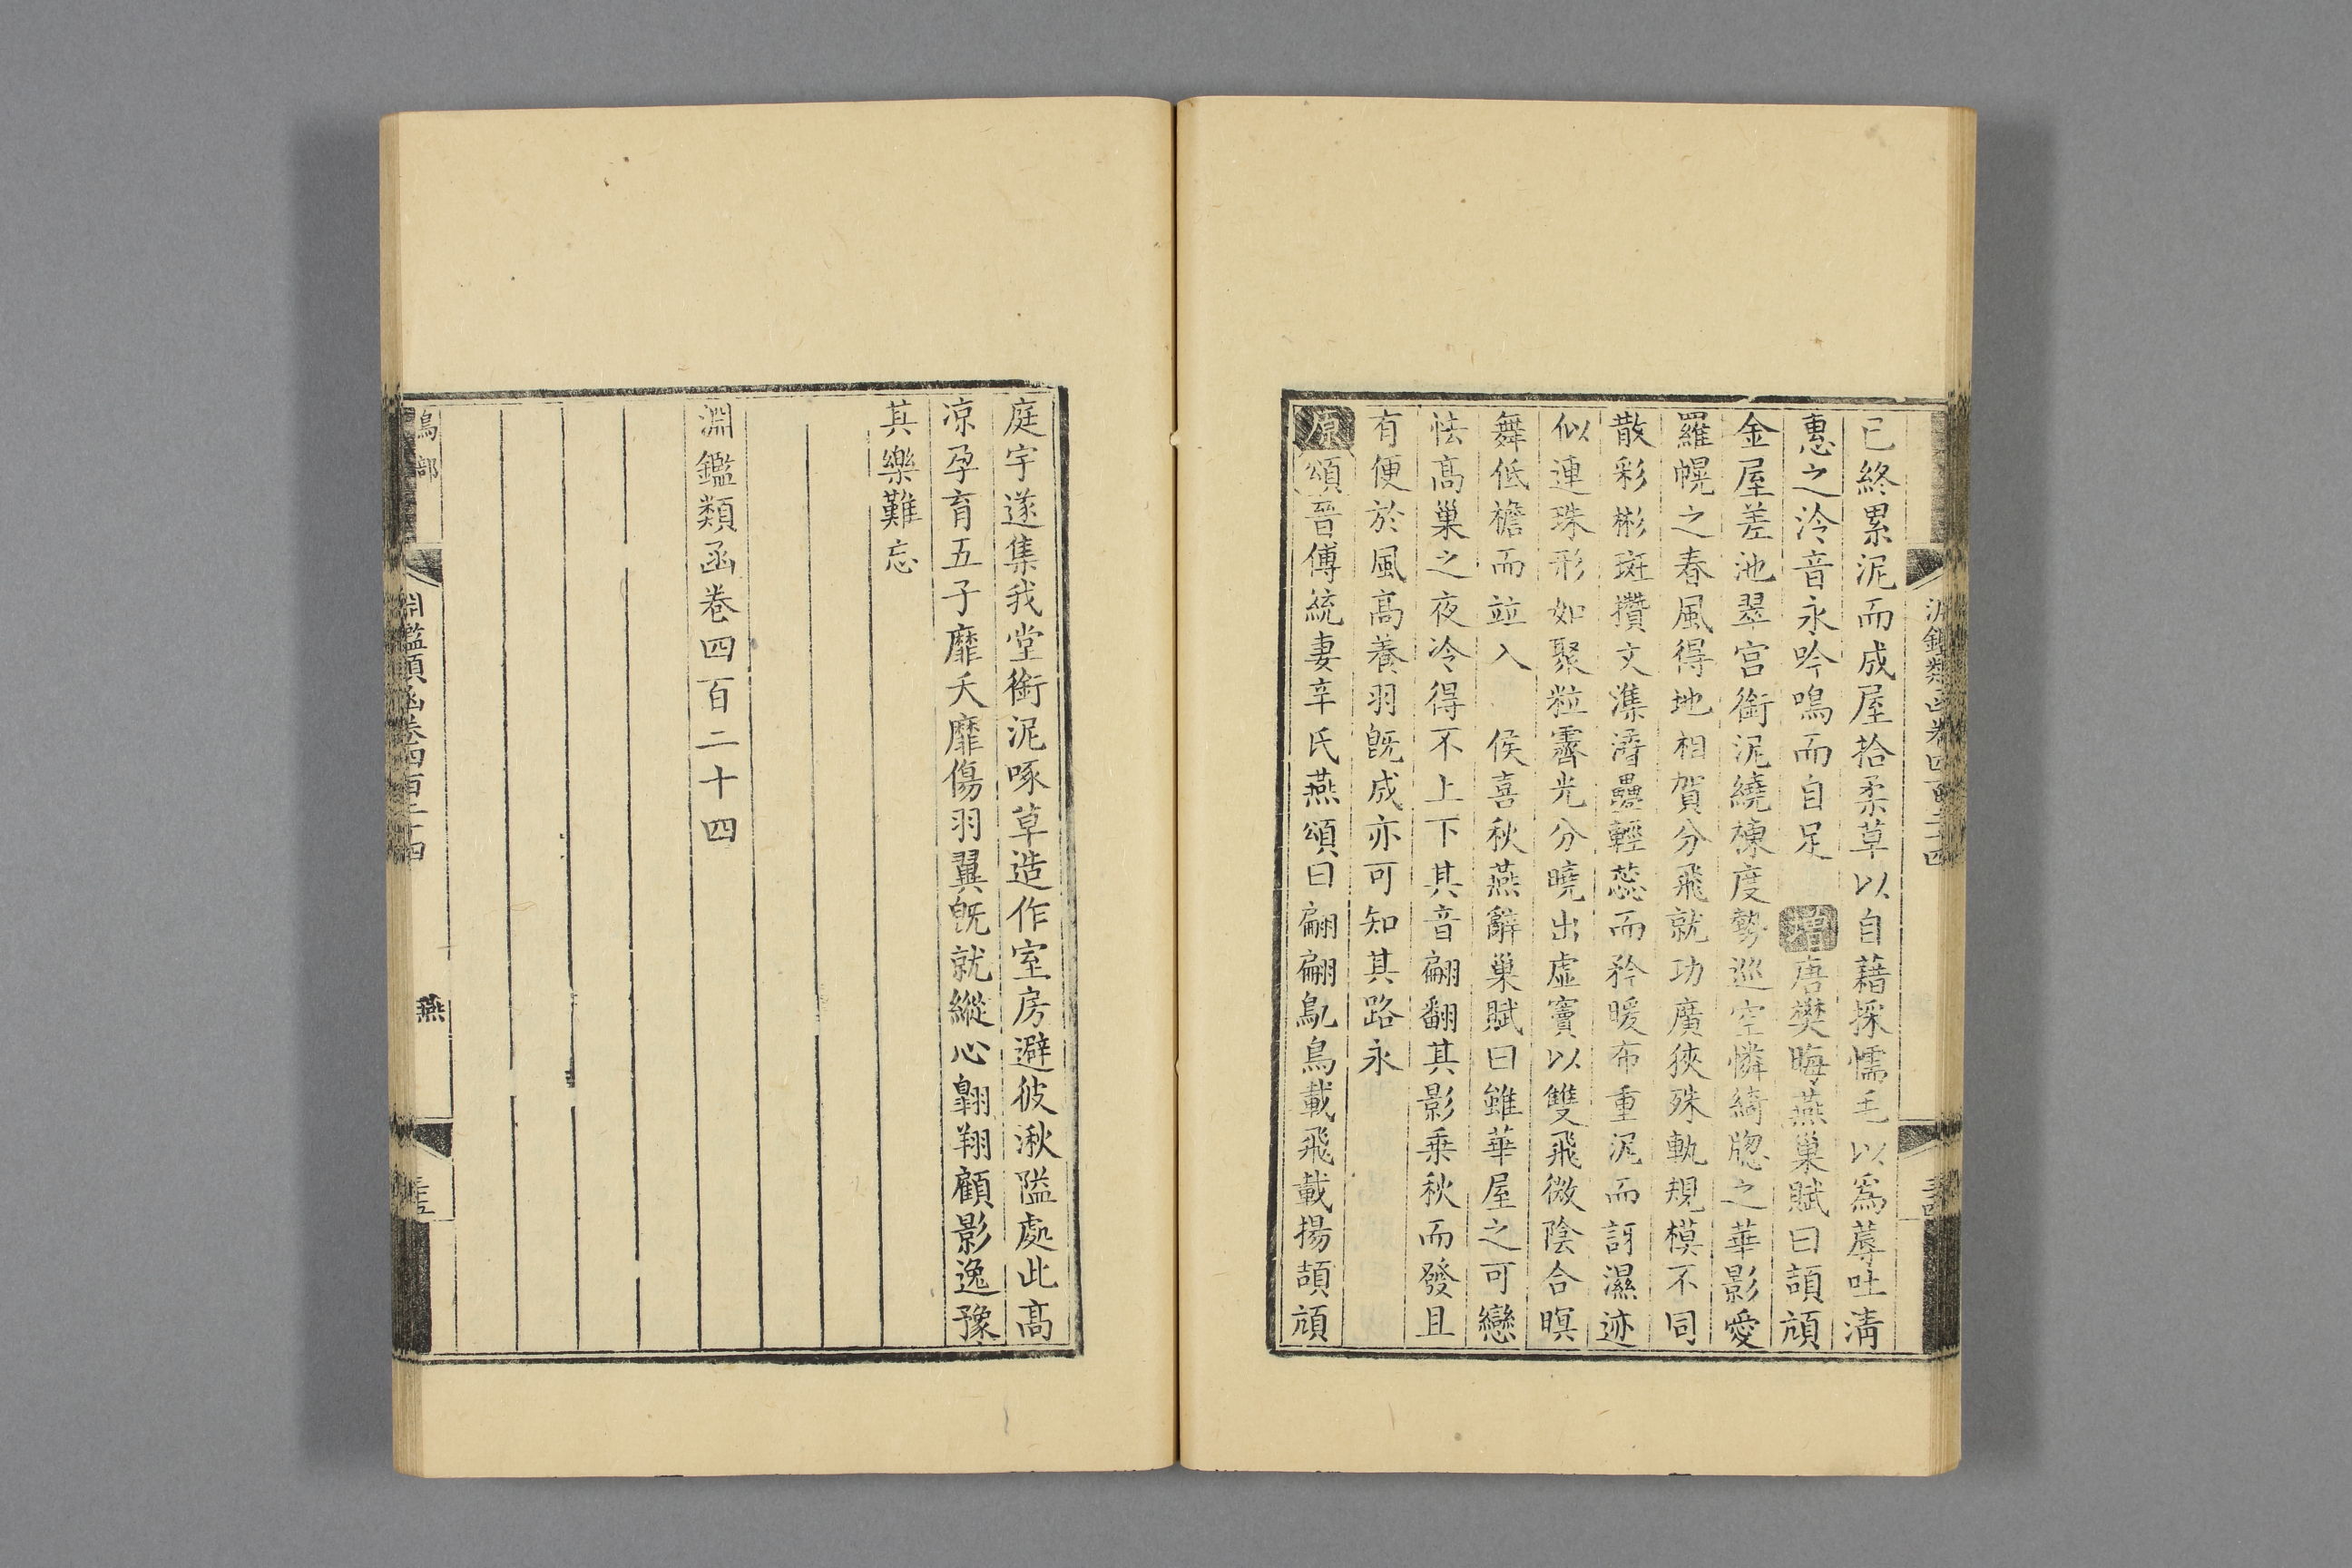 淵鑑類函卷四百二十四
已終累泥而成屋拾柔草以自藉採懦毛以爲蓐吐清
惠之泠音永吟鳴而自足　增唐樊晦燕巢賦曰頡頏
金屋差池翠宮銜泥繞棟度勢巡空憐綺牎之華影愛
羅幌之春風得地相賀分飛就功廣狹殊軌規模不同
散彩彬斑攢文濈濳疊輕蕊而矜暖布重泥而訝濕迹
似連珠形如聚粒霽光分曉出虛竇以雙飛微陰合暝
舞低檐而竝入　侯喜秋燕辭巢賦曰雖華屋之可戀
怯高巢之夜冷得不上下其音翩翻其影乗秋而發且
有便於風高養羽旣成亦可知其路永
原頌晉傅統妻辛氏燕頌曰翩翩鳦鳥載飛載揚頡頏
庭宇遂集我堂銜泥啄草造作室房避彼湫隘處此高
凉孕育五子靡夭靡傷羽翼旣就縱心翱翔顧影逸豫
其樂難忘
淵鑑類函卷四百二十四
鳥部
淵鑑類函卷四百二十四
燕